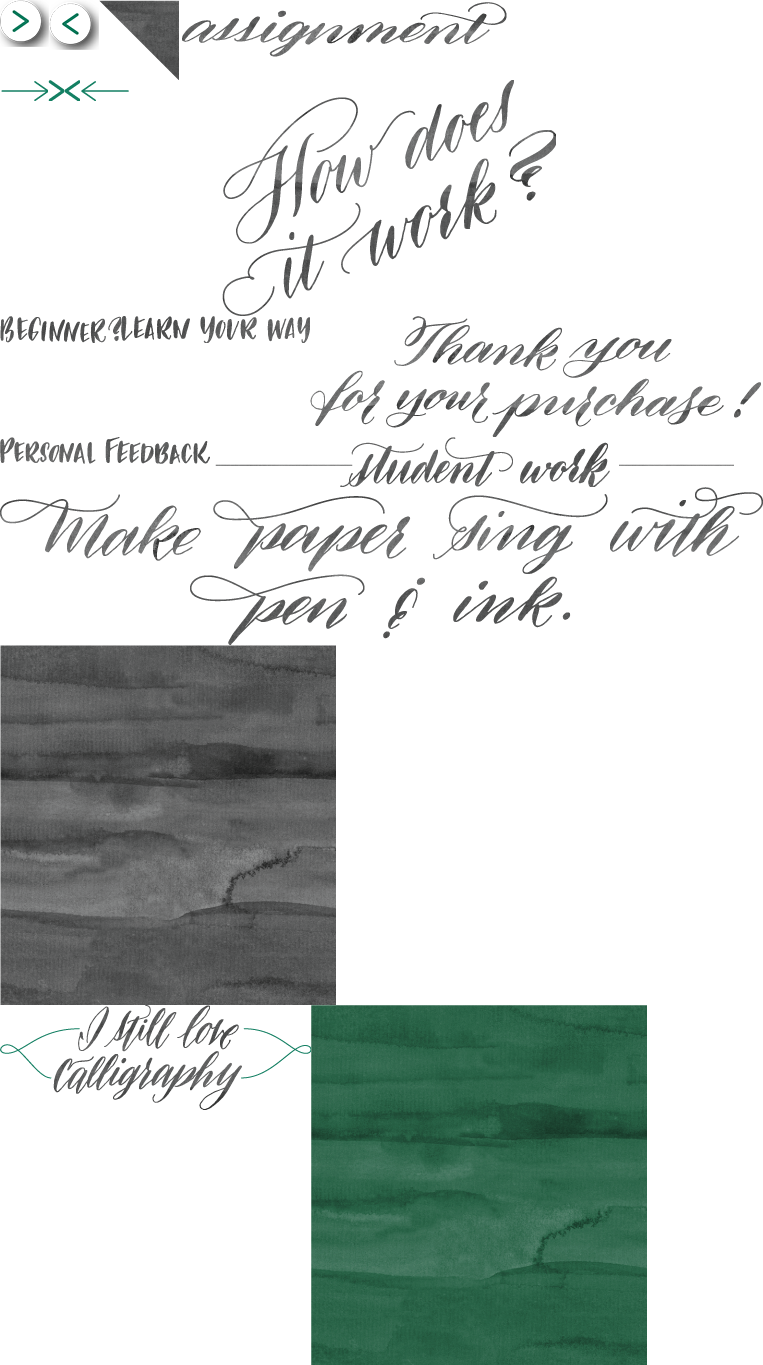 assignment
How does
it work?
BEGINNER?
LEARN YOUR WAY
Thank you
for your purchase!
PERSONAL FEEDBACK
student work
Make paper sing with
pen & ink.
I still love
Calligraphy